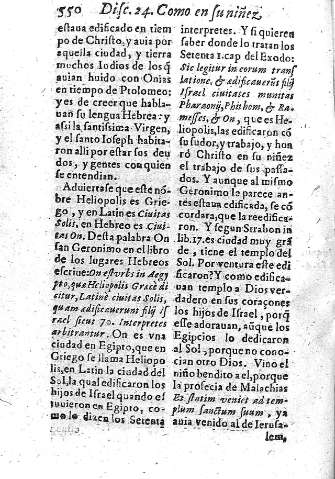 550 Disc. 24. Como en su niñez
estaua edificado en tiem
po de Christo, y auia por
aquella ciudad, y tierra
muchos Iudios de los q̃
auian huido con Onias
en tiempo de Ptolomeo:
y es de creer que habla-
uan su lengua Hebrea: y
assi la santissima Virgen,
y el santo Ioseph habita-
ron alli por estar sus deu
dos, y gentes con quien
se entendian.
Aduiertase que este nõ-
bre Heliopolis es Grie-
go, y en Latin es Ciuitas
Solis, en Hebreo es Ciui-
tas On. Desta palabra On
san Geronimo en el libro
de los lugares Hebreos
escriue: On est vrbs in Aegy
pto, quæ Heliopolis Græcè di
citur, Latinè ciuitas Solis,
quam ædificauerunt filij Is
rael sicut 70. Interpretes
arbitrantur. On es vna
ciudad en Egipto, que en
Griego se llama Heliopo
lis, en Latin la ciudad del
Sol, la qual edificaron los
hijos de Israel quando es
tuuieron en Egipto, co-
mo lo dizen los Setenta
interpretes. Y si quieren
saber donde lo tratan los
Setenta 1. cap del Exodo:
Sic legitur in eorum trans
latione, & ædificauerũt filij
Israel ciuitates munitas
Pharaonij, Phithom, & Ra-
messes, & On, que es He-
liopolis, las edificaron cõ
su sudor, y trabajo, y hon
ró Christo en su niñez
el trabajo de sus passa-
dos. Y aunque al mismo
Geronimo le parece an-
tes estaua edificada, se có
cordara, que la reedifica-
ron. Y segun Strabon in
lib. 17. es ciudad muy grã
de, tiene el templo del
Sol. Por ventura este edi
ficaron? Y como edifica-
uan templo a Dios ver-
dadero en sus coraçones
los hijos de Israel, porq̃
esse adorauan, aũque los
Egipcios lo dedicaron
al Sol, porque no cono-
cian otro Dios. Vino el
niño bendito a el, porque
la profecia de Malachias
Et statim veniet ad tem-
plum sanctum suum, ya
auia venido al de Ierusa-
lem,